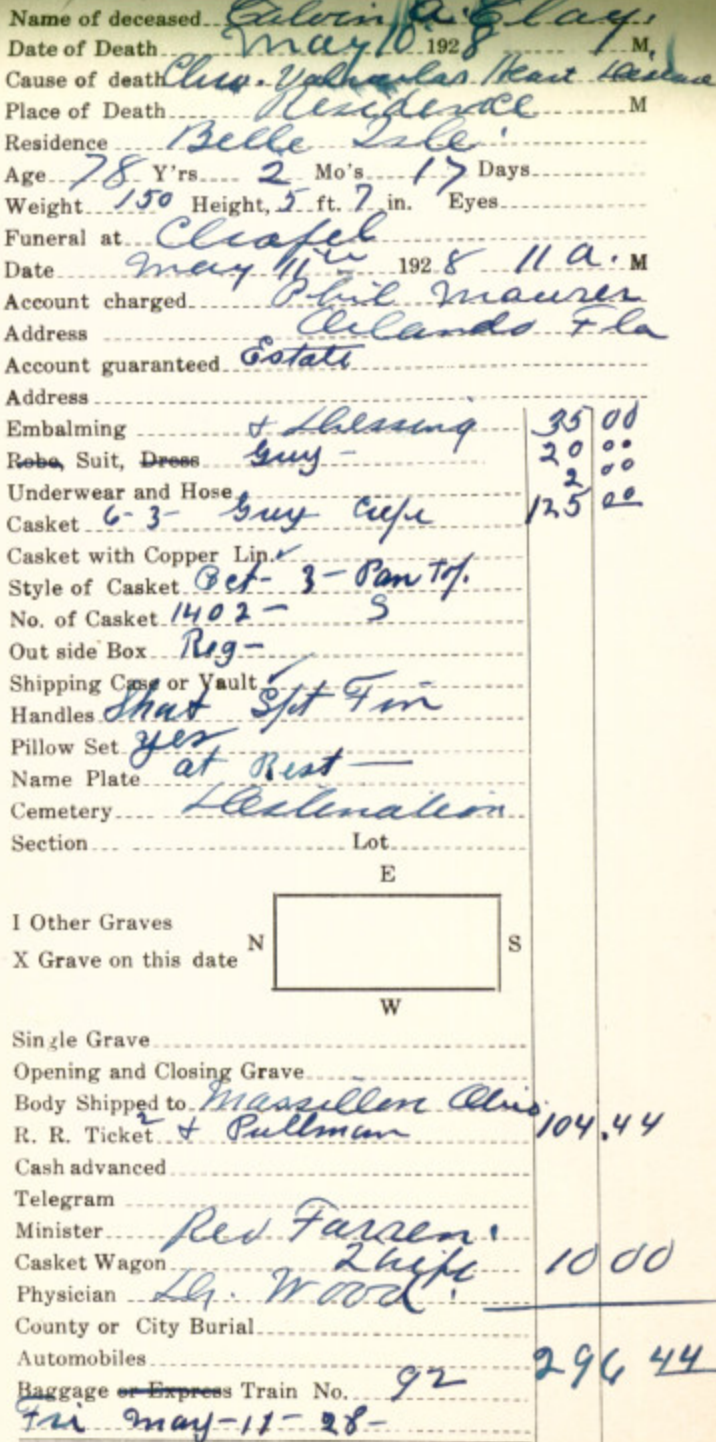 Name of deceased Calvin A. Clay.
Date of Death May 10 1928 1 M.
Cause of death Chro. Valvular Heart Disease
Place of Death Residence M
Residence Belle Isle.
Age 78 Y'rs 2 Mo's 17 Days
Weight 150 Height, 5 ft. 7 in. Eyes
Funeral at Chapel
Date May 11th 1928 11 a. M
Account charged Phil Maurer
Address Orlando Fla
Account guaranteed Estate
Address
Embalming & Dressing 35 00
Robe, Suit, Dress Grey - 20 00
Underwear and Hose 2 00
Casket 6-3- Grey Crepe 125 00
Casket with Copper Lin. ✓
Style of Casket Oct- 3- Pan Top.
No. of Casket 1402 - S
Out side Box Reg-
Shipping Case or Vault ✓
Handles Short Fin
Pillow Set yes
Name Plate at Rest —
Cemetery Destination
Section Lot
E
I Other Graves
X Grave on this date
N S
W
Single Grave
Opening and Closing Grave
Body Shipped to Massillon Ohio.
R. R. Ticket 2 & Pullman 104.44
Cash advanced
Telegram
Minister Rev Farren.
Casket Wagon 2 10 00
Physician Dr. Wood.
County or City Burial
Automobiles 296 44
Baggage or Express Train No. 92
Fri May-11-28-